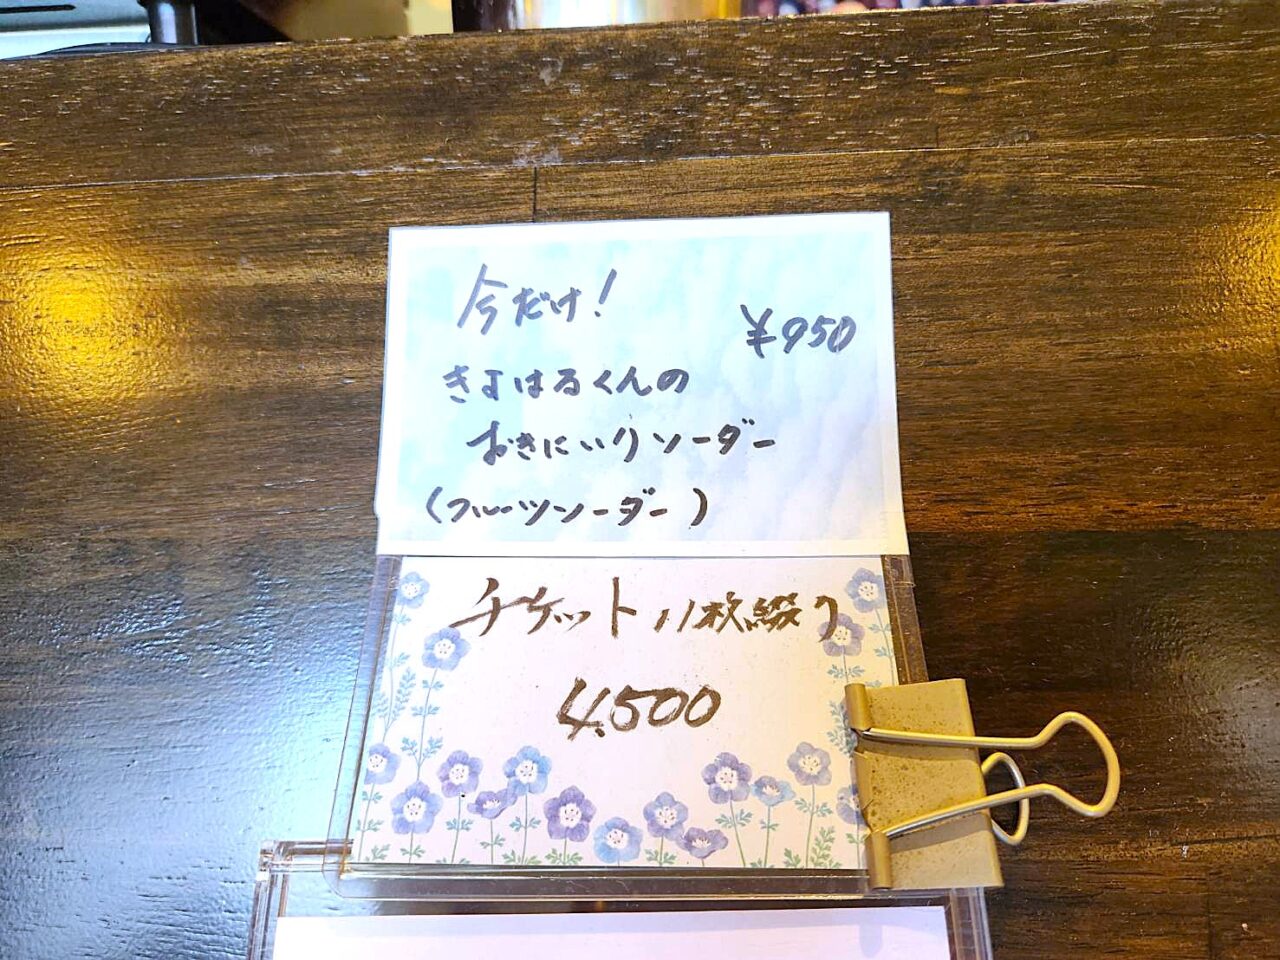 今だけ！
¥950
きよはるくんの
おきにいりソーダー
（フルーツソーダー）
チケット11枚綴り
4,500